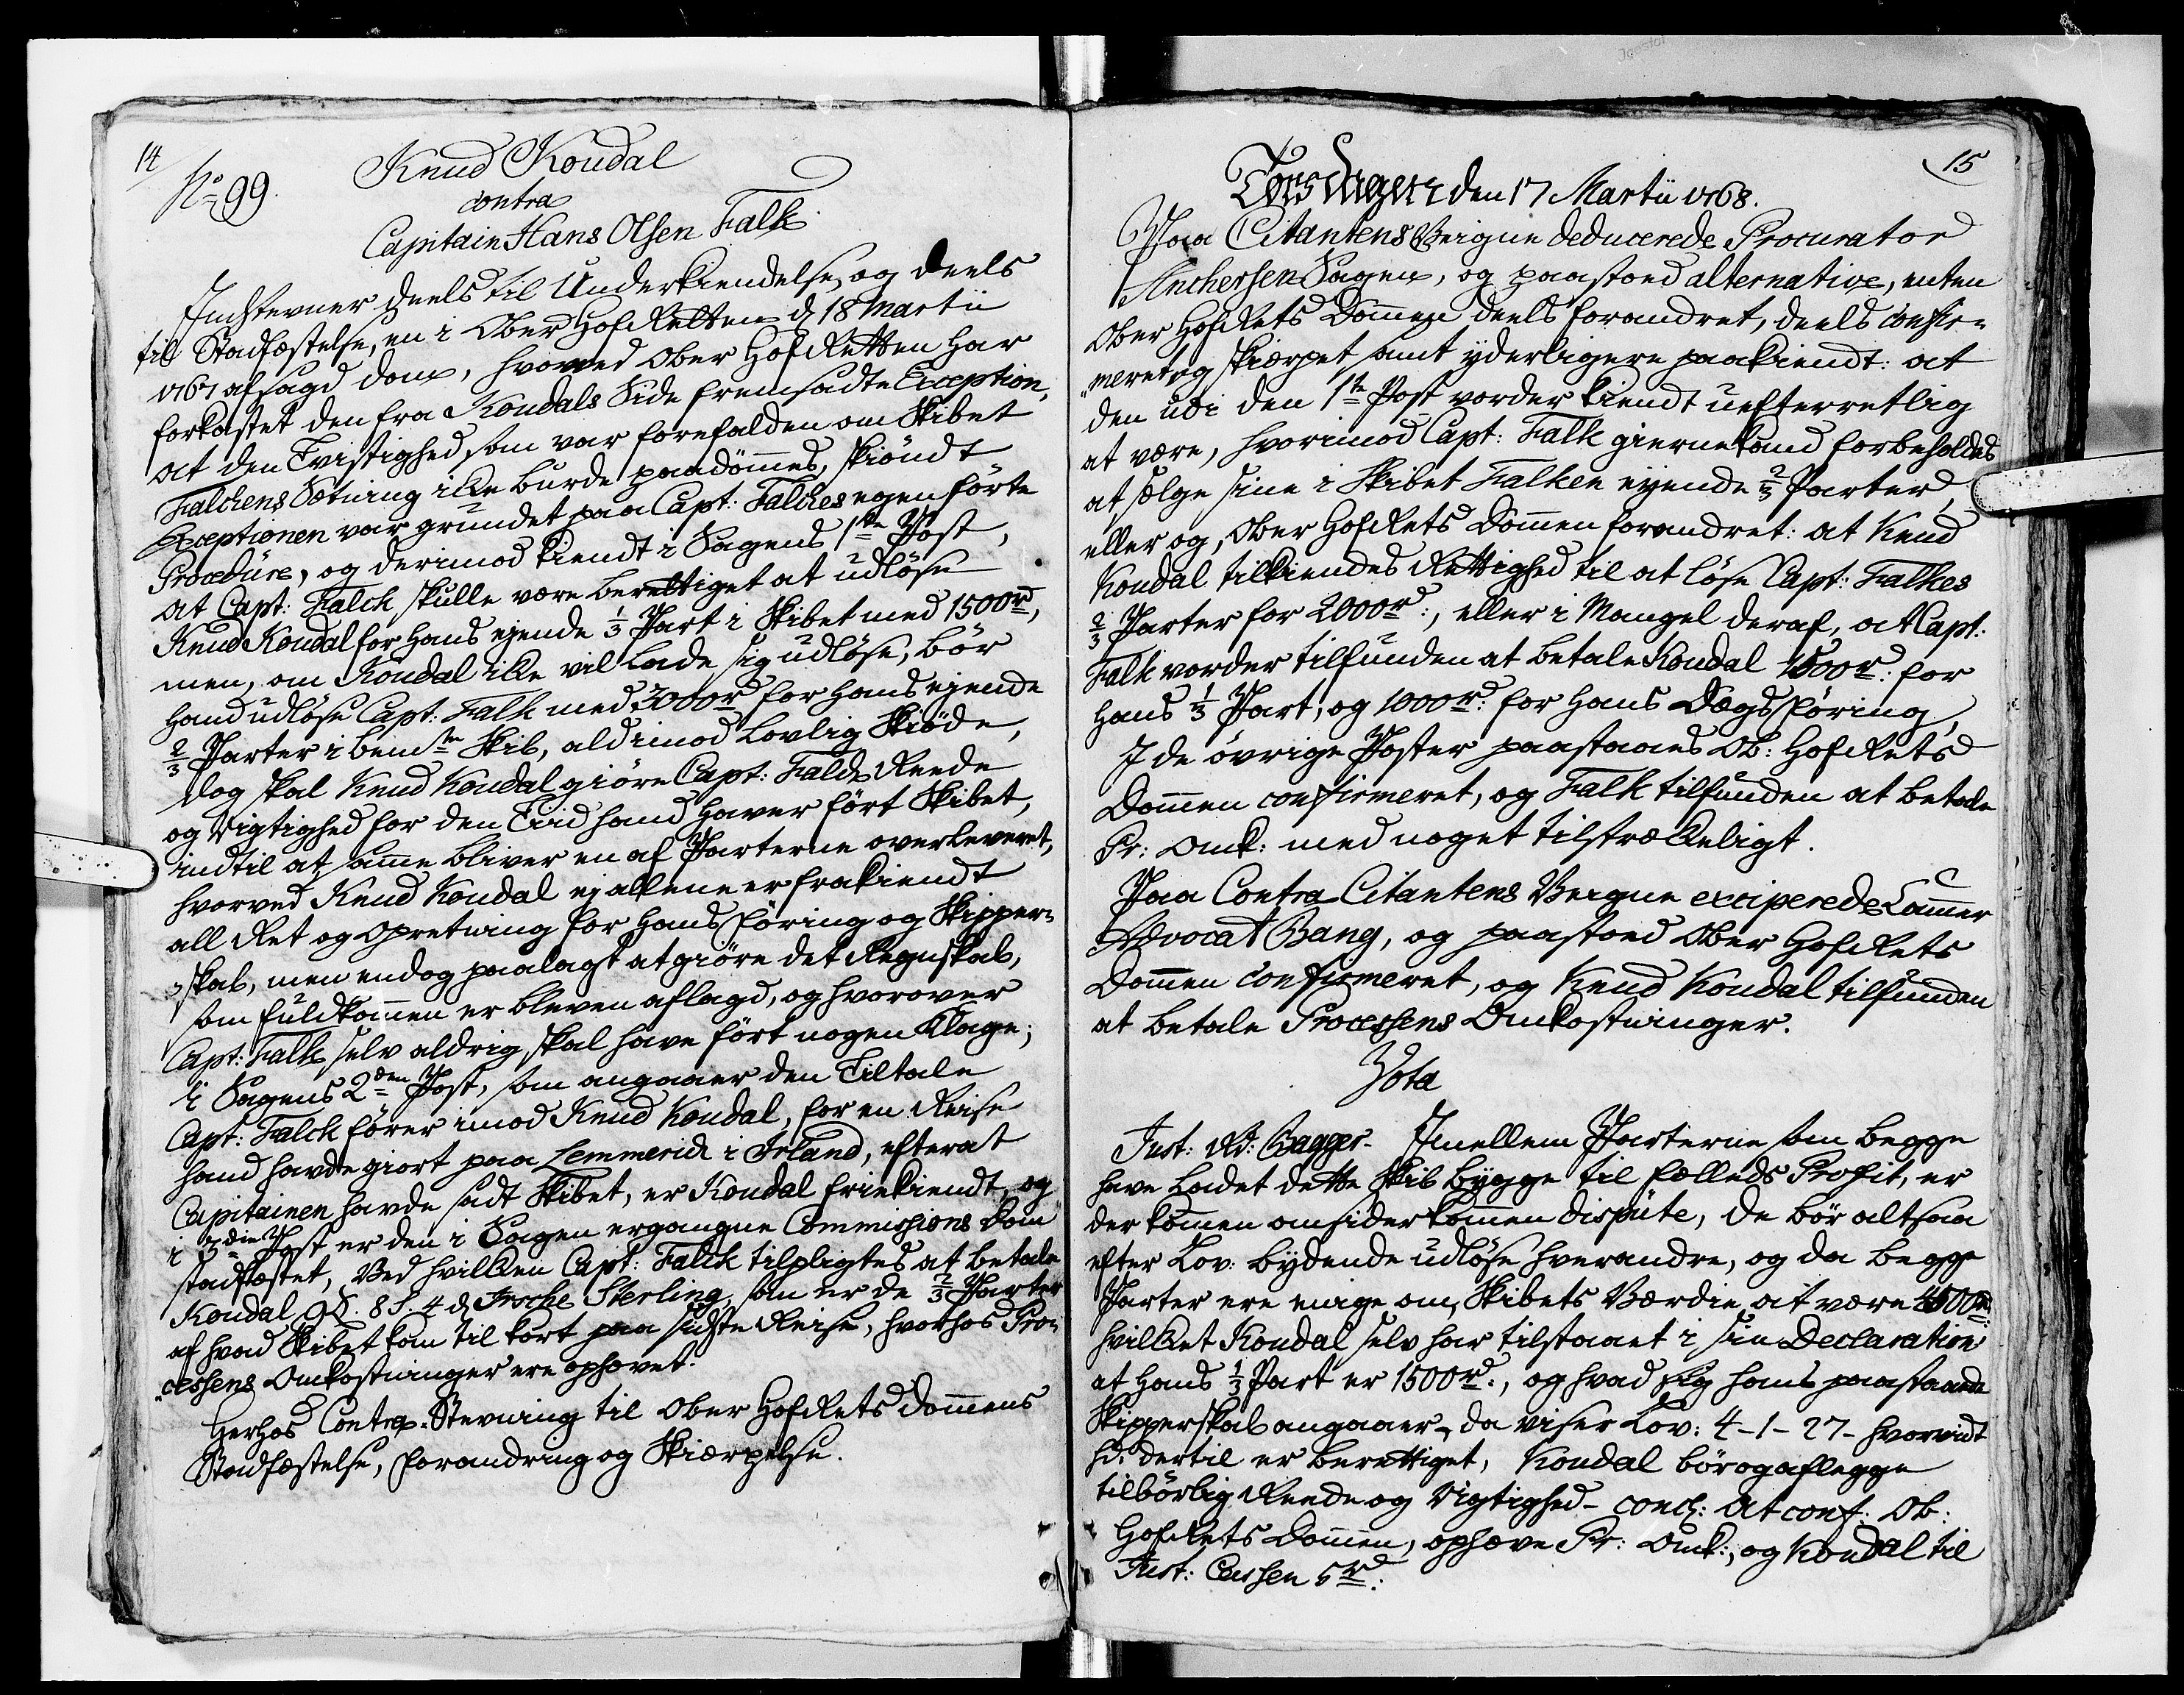 14
No 99.
Knud Koudal
contra
Capitain Hans Olsen Falk
Indstevner deels til Underkiendelse, og deels
til Stadfæstelse, en i Ober Hof Retten d 18 Martii
1767 afsagd Dom, hvorved Ober Hof Retten har
forkastet den fra Koudals Side fremsadte Exception,
at den Tvistighed som var forefalden om Skibet
Falchens Sætning ikke burde paadömmes, skiöndt
Exceptionen var grundet paa Capt: Falches egen förte
Procedure, og derimod kiendt i Sagens 1ste Post,
at Capt: Falck skulle være berettiget at udlöse
Knud Koudal for hans ejende 1/3 Part i Skibet med 1500 rd,
men, om Koudal ikke vil lade sig udlöse, bör
hand udlöse Capt: Falk med 3000 rd for hans ejende
2/3 Parter i bem.te Skib, alt imod lovlig Skiöde,
dog skal Knud Koudal giöre Capt: Falck Reede
og Rigtighed for den Tiid hand haver fört Skibet,
indtil at samme bliver en af Parterne overleveret,
hvorved Knud Koudal ej allene er frakiendt
all Ret og Opretning for hans Föring og Skipper-
skab, men endog paalagt at giöre det Regnskab,
som fuldkommen er bleven aflagd, og hvorover
Capt: Falk selv aldrig skal have fört nogen Klage;
i Sagens 2den Post, som angaaer den Tiltale
Capt: Falck förer imod Knud Koudal, for en Reise
hand havde giort paa Lemmerich i Irland, efterat
Capitainen havde sadt Skibet, er Koudal friekiendt, og
i 3die Post er den i Sagen ergangne Commissions Dom
stadfæstet, ved hvilken Capt: Falck tilpligtes at betale
Koudal 9 £. 8 S. 4 d Irsche Sterling, som er de 2/3 Parter
af hvad Skibet kom til kort paa sidste Reise, hvorhos Pro-
cessens Omkostninger ere ophævet.
Herhos Contra-Stevning til Ober Hof Rets Dommens
Stadfæstelse, Forandring og Skiærpelse.
15
Torsdagen den 17 Martii 1768.
Paa Citantens Veigne deducerede Procurator
Anchersen Sagen, og paastoed alternative, enten
Ober Hof Rets Dommen deels forandret, deels confir-
meret og skiærpet samt yderligere paakiendt: at
den udi den 1te Post vorder kiendt uefterretlig
at være, hvorimod Capt: Falk giernekand forbeholdes
at sælge sine i Skibet Falken ejende 2/3 Parter,
eller og, Ober Hof Rets Dommen forandret: at Knud
Koudal tilkiendes Rettighed til at löse Capt: Falkes
2/3 Parter for 2000 rd:, eller i Mangel deraf, at Capt:
Falk vorder tilfunden at betale Koudal 1500 rd: for
hans 1/3 Part, og 1000 rd: for hans Dags Föring,
I de övrige Poster paastaaes Ob: Hof Rets
Dommen confirmeret, og Falk tilfunden at betale
Pr: Omk: med noget tilstrækkeligt.
Paa Contra Citantens Veigne exciperede Cammer
Advocat Bang, og paastoed Ober Hof Rets
Dommen confirmeret, og Knud Koudal tilfunden
at betale Processens Omkostninger.
Vota
Just: Rd: Bagger- Imellem Parterne som begge
have ladet dette Skib bygge til fælleds Profit, er
der kommen omsider kommen dispute, de bör altsaa
efter Lov: bydende udlöse hverandre, og da begge
Parter ere enige om, Skibets Værdie at være 4500 rd:
hvilket Koudal selv har tilstaaet i sin Declaration
at hans 1/3 Part er 1500 rd:, og hvad sig hans paastaaede
Skipperskab angaaer, da viser Lov: 4-1-27- hvorvidt
hd: dertil er berettiget, Koudal bör og aflegge
tilbörlig Reede og Rigtighed- concl: At conf: Ob:
Hof Rets Dommen, ophæve Pr: Omk:, og Koudal til
Just: Cassen 5 rd: